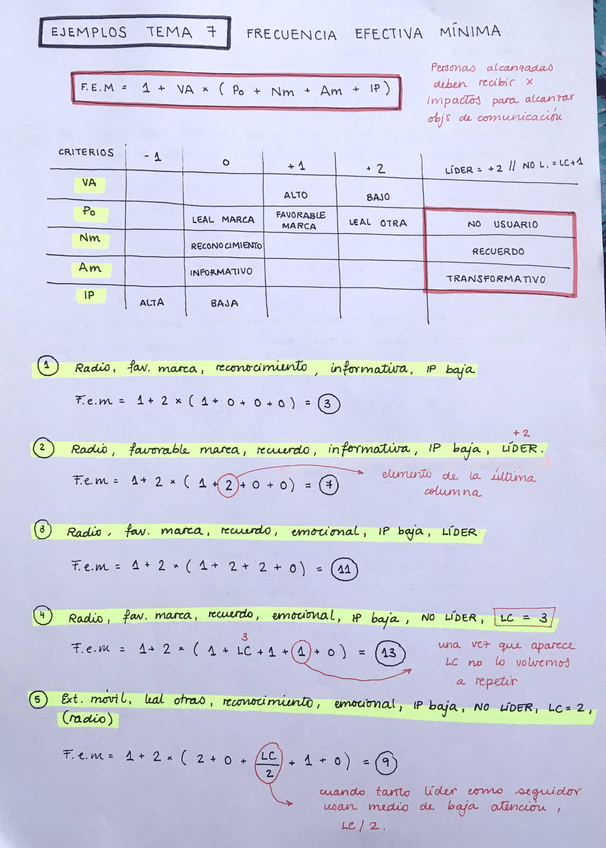 EJEMPLOS TEMA 7 FRECUENCIA EFECTIVA MÍNIMA
F.E.M = 1 + VA × ( Po + Nm + Am + IP )
Personas alcanzadas
deben recibir x
impactos para alcanzar
objs de comunicación
CRITERIOS -1 0 +1 +2 LÍDER = +2 // NO L. = LC+1
VA ALTO BAJO
Po LEAL MARCA FAVORABLE MARCA LEAL OTRA NO USUARIO
Nm RECONOCIMIENTO RECUERDO
Am INFORMATIVO TRANSFORMATIVO
IP ALTA BAJA
1 Radio, fav. marca, reconocimiento, informativa, IP baja
F.e.m = 1 + 2 × ( 1 + 0 + 0 + 0 ) = 3
+2
2 Radio, favorable marca, recuerdo, informativa, IP baja, LÍDER.
F.e.m = 1 + 2 × ( 1 + 2 + 0 + 0 ) = 7
elemento de la última
columna
3 Radio, fav. marca, recuerdo, emocional, IP baja, LÍDER
F.e.m = 1 + 2 × ( 1 + 2 + 2 + 0 ) = 11
4 Radio, fav. marca, recuerdo, emocional, IP baja, NO LÍDER, LC = 3
3
F.e.m = 1 + 2 × ( 1 + LC + 1 + 1 + 0 ) = 13
una vez que aparece
LC no lo volvemos
a repetir
5 Ext. móvil, leal otras, reconocimiento, emocional, IP baja, NO LÍDER, LC = 2,
(radio)
F.e.m = 1 + 2 × ( 2 + 0 + LC/2 + 1 + 0 ) = 9
cuando tanto líder como seguidor
usan medio de baja atención,
LC/2.